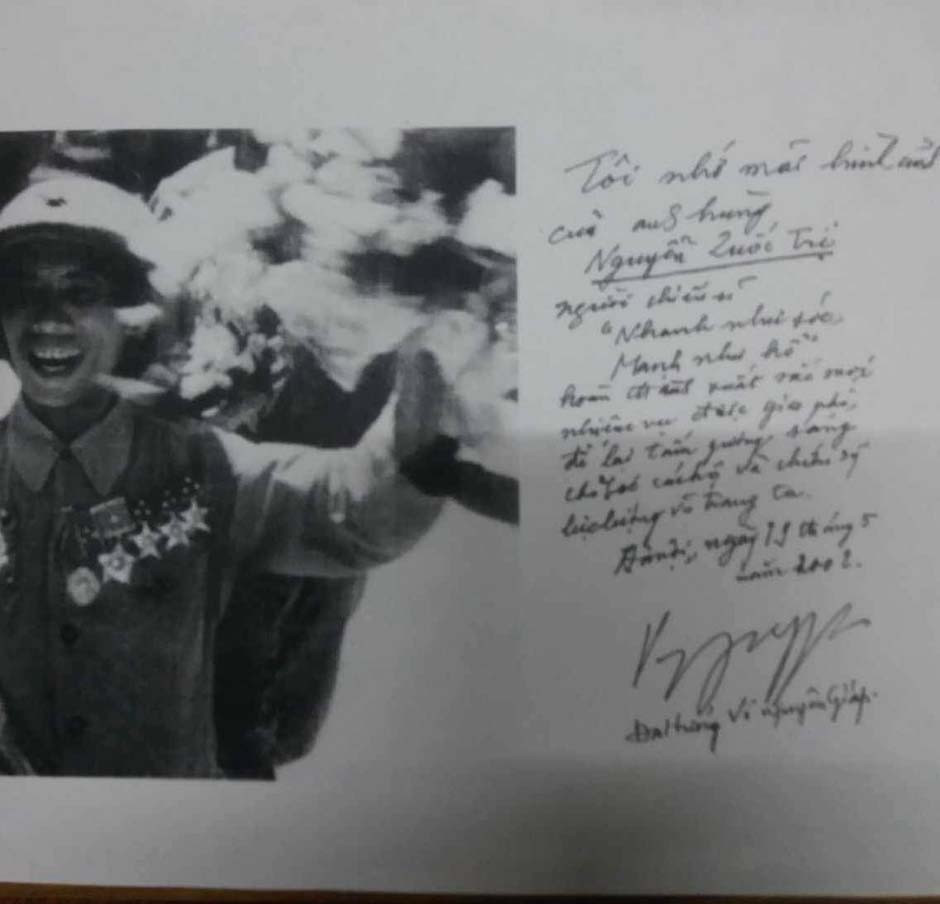 Tôi nhớ mãi hình ảnh
của anh hùng
Nguyễn Quốc Trị
người chiến sĩ
"Nhanh như sóc
Mạnh như hổ"
hoàn thành xuất sắc mọi
nhiệm vụ được giao phó,
để lại tấm gương sáng
cho cán bộ và chiến sỹ
lực lượng vũ trang ta.
Hà Nội, ngày 19 tháng 5
năm 2002.
Đại tướng Võ Nguyên Giáp.